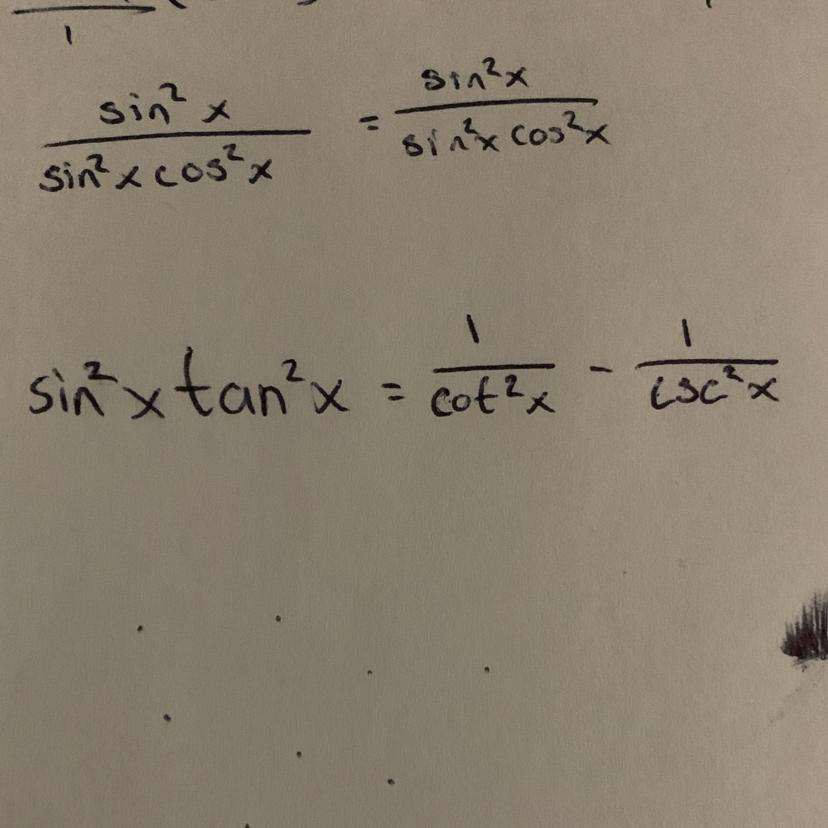 1
sin²x / sin²x cos²x = sin²x / sin²x cos²x
sin²x tan²x = 1 / cot²x - 1 / csc²x